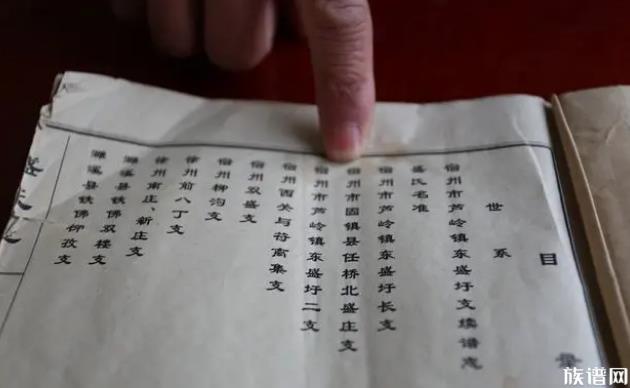 目
世系
宿州市芦岭镇东盛圩支续谱志
盛氏名准
宿州市芦岭镇东盛圩长支
宿州市固镇县任桥北盛庄支
宿州市芦岭镇东盛圩二支
宿州西关与符离集支
宿州双盛支
宿州柳沟支
徐州前八丁支
徐州南庄、新庄支
濉溪县铁佛双楼支
濉溪县铁佛柳孜支
族谱网